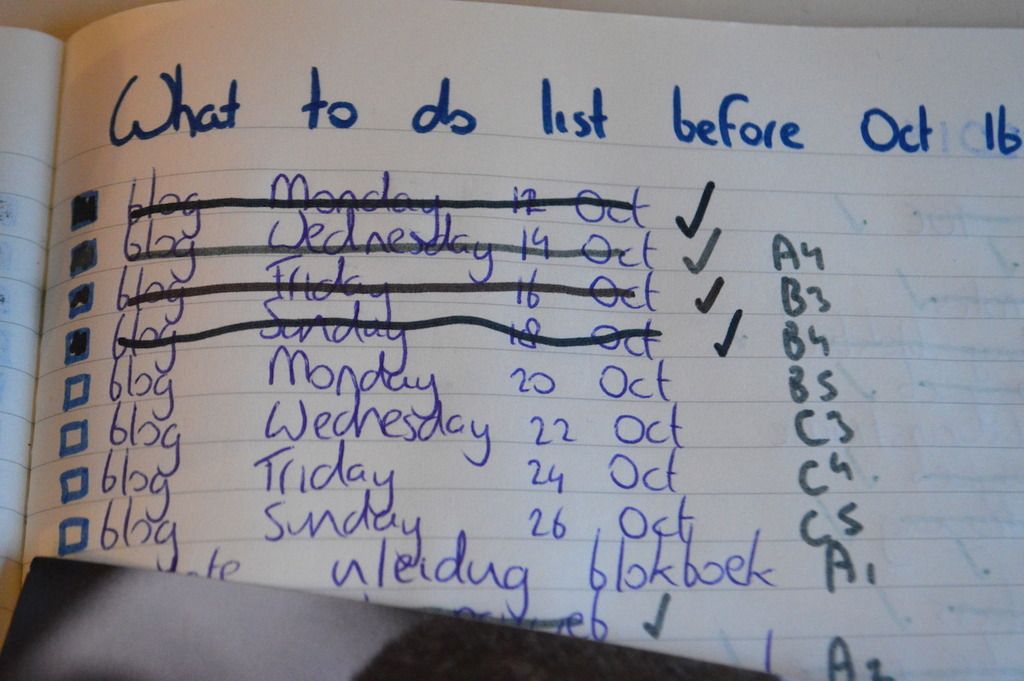 What to do list before Oct 16
blog Monday 12 Oct ✓
blog Wednesday 14 Oct ✓ A4
blog Friday 16 Oct ✓ B3
blog Sunday 18 Oct ✓ B4
blog Monday 20 Oct B5
blog Wednesday 22 Oct C3
blog Friday 24 Oct C4
blog Sunday 26 Oct C5
blokboek A1
✓
A2